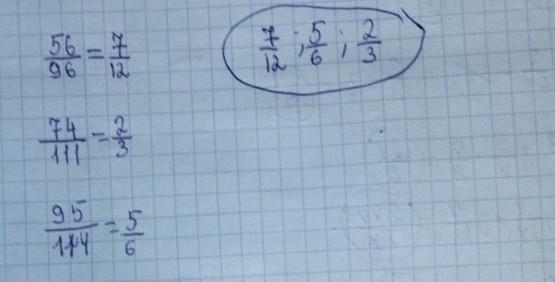 56/96 = 7/12
7/12 ; 5/6 ; 2/3
74/111 = 2/3
95/114 = 5/6